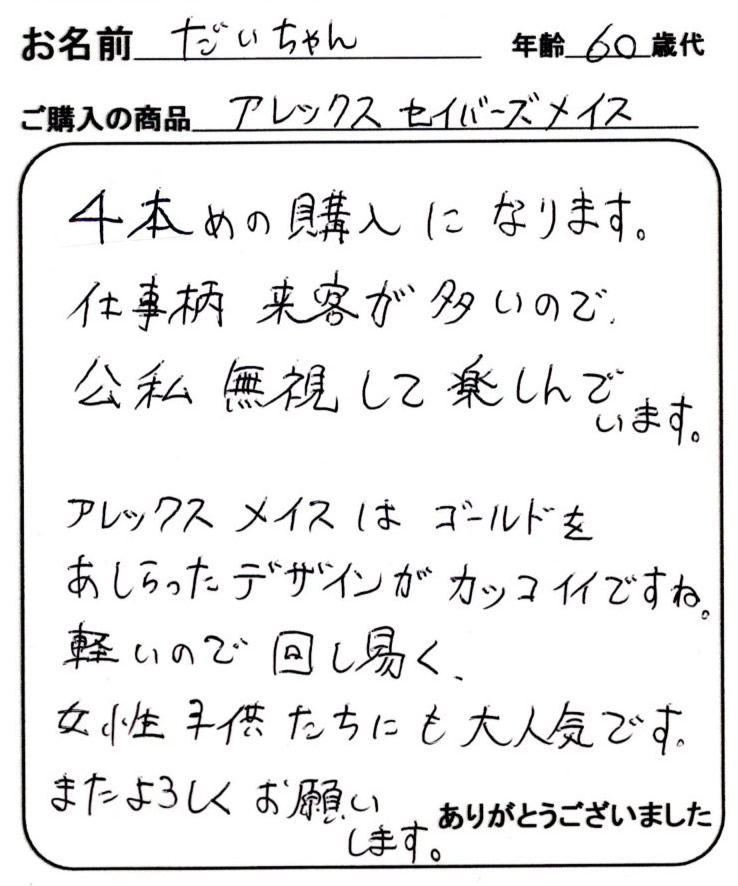 お名前 だいちゃん 年齢 60 歳代
ご購入の商品 アレックス セイバーズメイス
4本めの購入になります。
仕事柄 来客が多いので、
公私無視して楽しんで
います。
アレックス メイスは ゴールドを
あしらったデザインがカッコイイですね。
軽いので 回し易く、
女性子供たちにも大人気です。
またよろしくお願い
します。
ありがとうございました